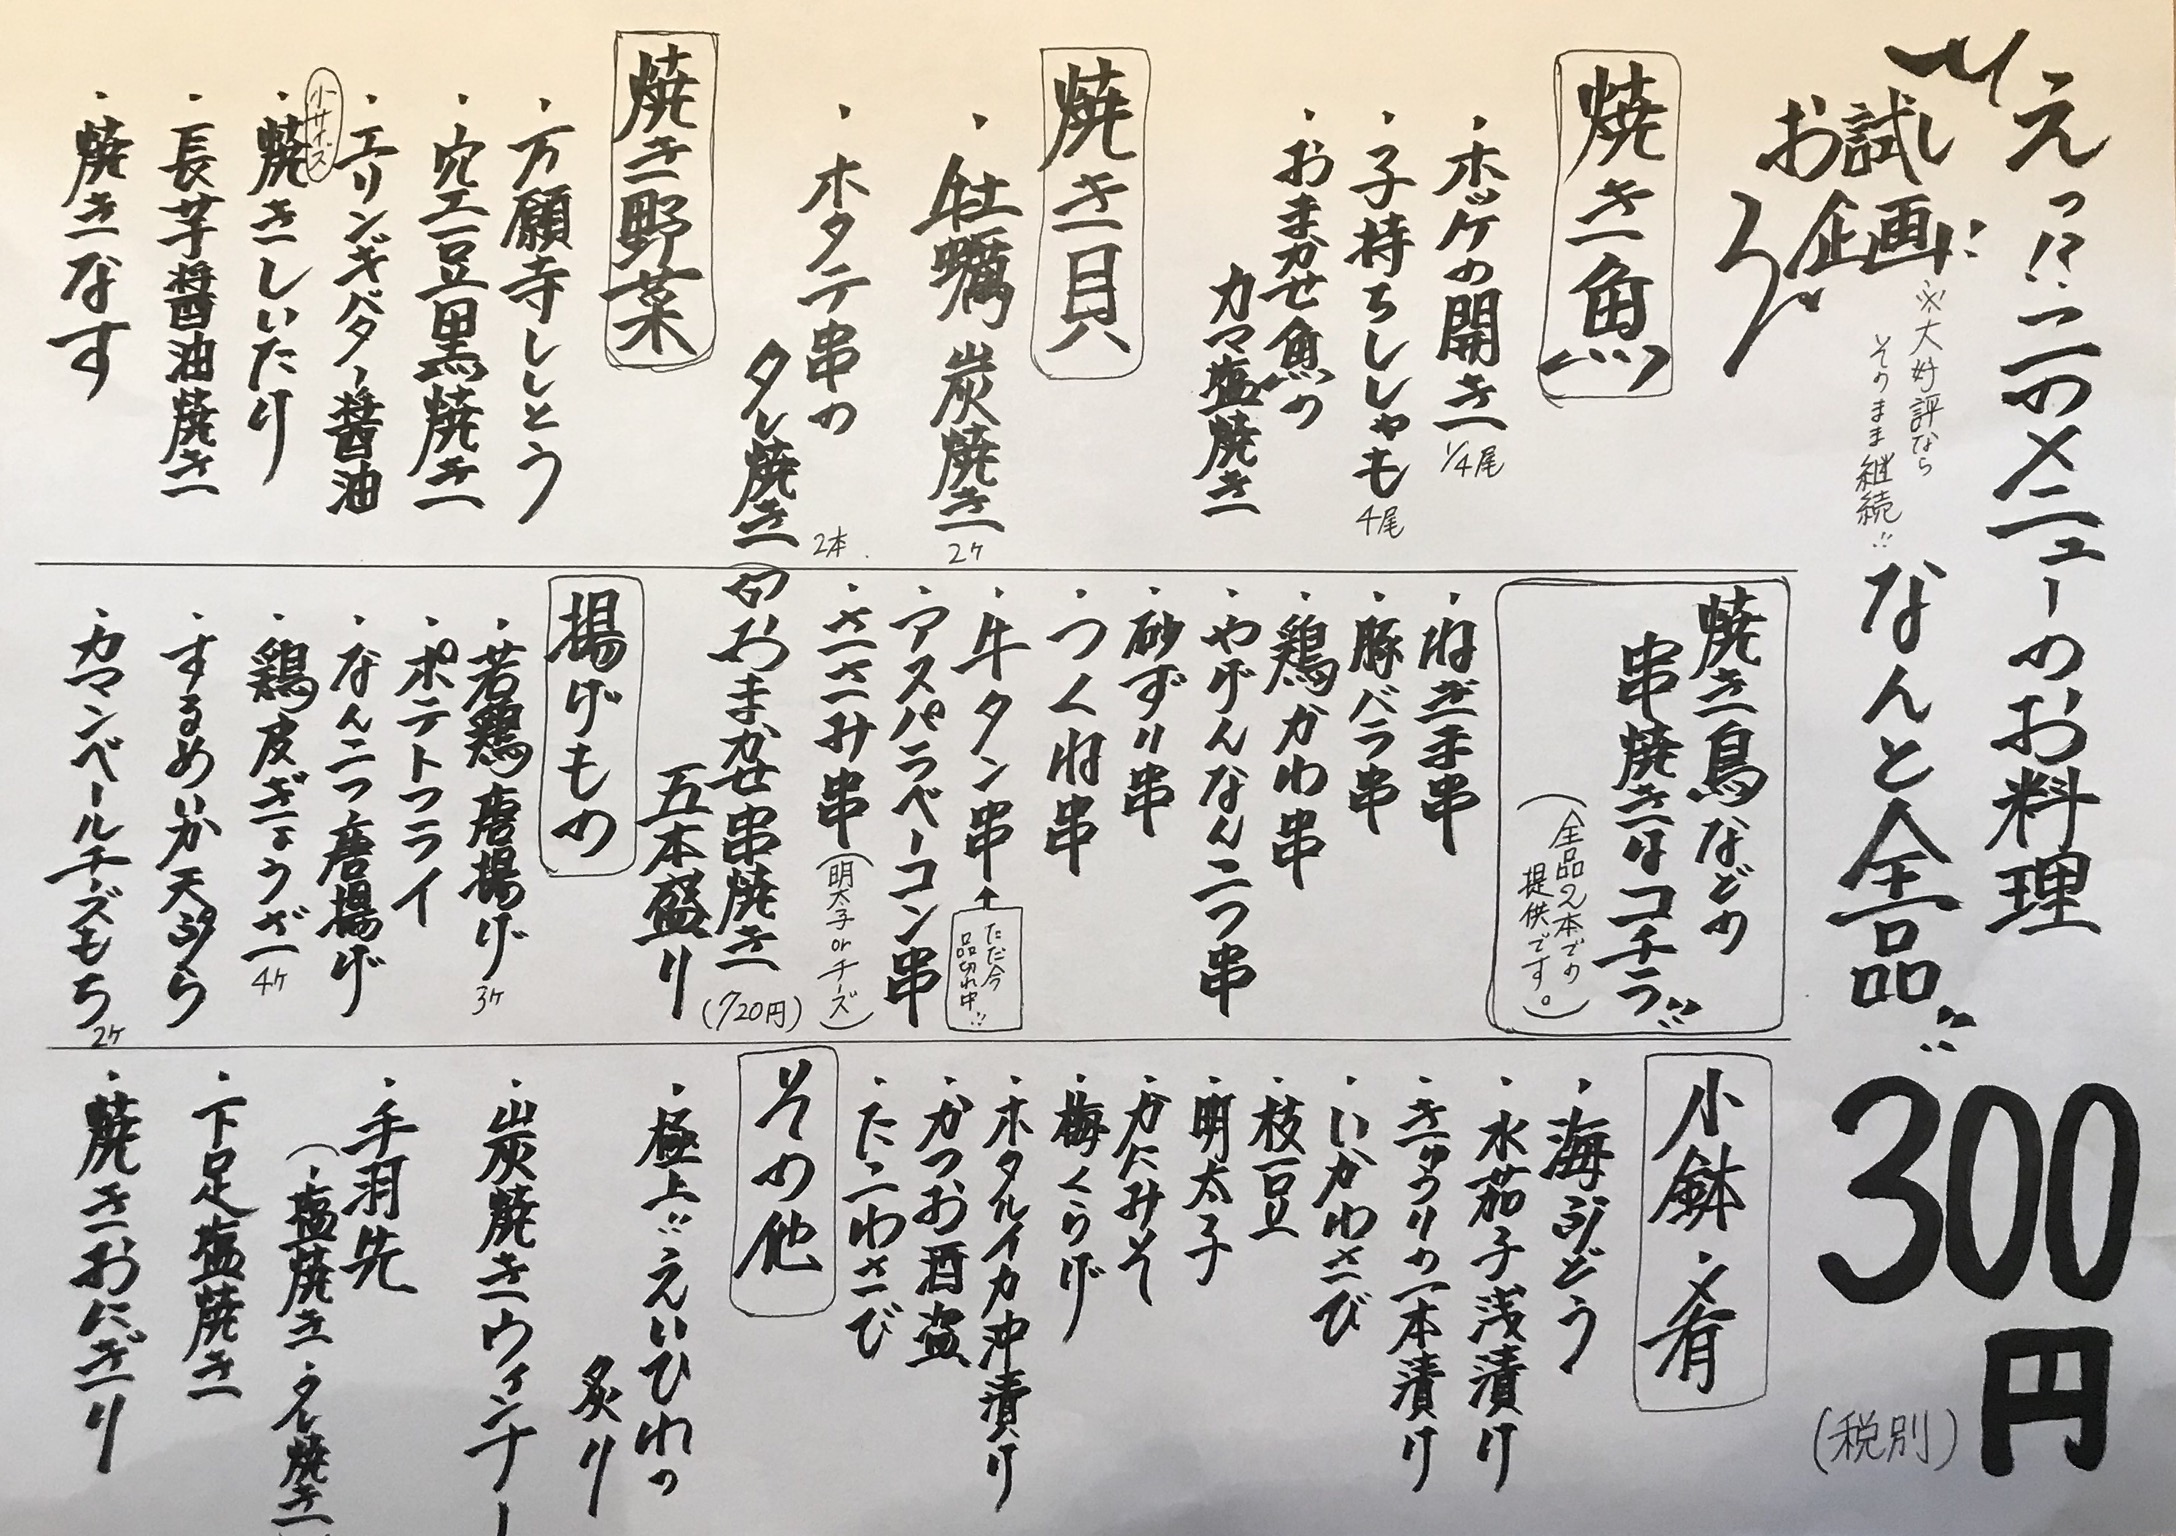 えっ!?このメニューのお料理
なんと全品!!
300円
(税別)
お試し
企画!!
※大好評なら
そのまま継続!!
焼き魚
・ホッケの開き 1/4尾
・子持ちししゃも 4尾
・おまかせ魚の
カマ塩焼き
焼き貝
・牡蠣 炭焼き 2ケ
・ホタテ串の
タレ焼き 2本
焼き野菜
・万願寺ししとう
・空豆黒焼き
・エリンギバター醤油
・焼きしいたけ
小サイズ
・長芋醤油焼き
・焼きなす
焼き鳥などの
串焼きはコチラ!!
(全品2本での
提供です。)
・ねぎま串
・豚バラ串
・鶏かわ串
・やげんなんこつ串
・砂ずり串
・つくね串
・牛タン串
ただ今
品切れ中!!
・アスパラベーコン串
・ささみ串 (明太子orチーズ)
おまかせ串焼き
五本盛り (720円)
揚げもの
・若鶏唐揚げ 3ケ
・ポテトフライ
・なんこつ唐揚げ
・鶏皮ぎょうざ 4ケ
・するめいか天ぷら
・カマンベールチーズもち 2ケ
小鉢・〆肴
・海ぶどう
・水茄子浅漬け
・きゅうりの一本漬け
・いかわさび
・枝豆
・明太子
・かにみそ
・梅くらげ
・ホタルイカ沖漬け
・かつお酒盗
・たこわさび
その他
・極上!!えいひれっ
炙り
・炭焼きウィンナー
・手羽先
(・塩焼き・タレ焼き
・下足塩焼き
・焼きおにぎり